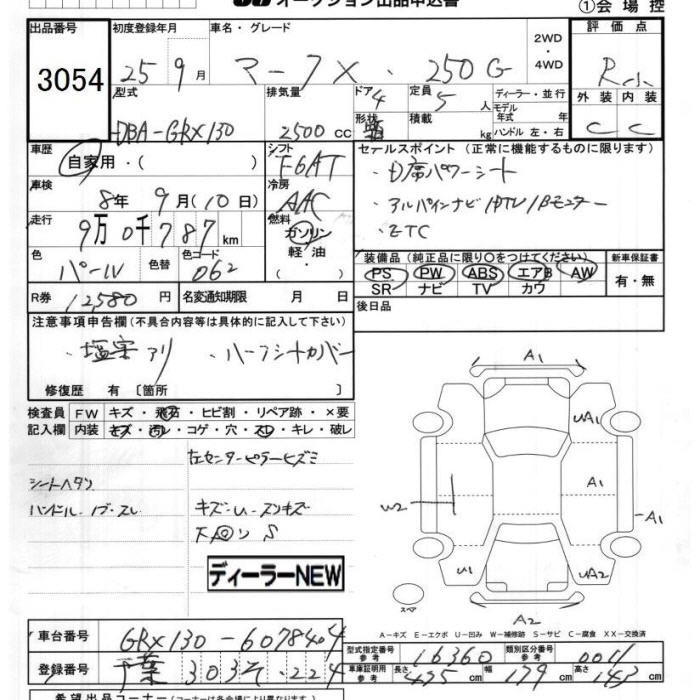 オークション出品申込書
①会場控
出品番号
3054
初度登録年月
25 9月
車名・グレード
マークX . 250G
2WD
・
4WD
評価点
R小
外装 内装
C C
型式
DBA-GRX130
排気量
2500cc
ドア 4
形状
定員 5人
積載 kg
ディーラー・並行
モデル
年式 年
ハンドル 左・右
車歴
自家用・( )
シフト
F6AT
セールスポイント (正常に機能するものに限ります)
・D席パワーシート
・アルパインナビ/DTV/Bモニター
・ETC
車検
8年 9月(10日)
冷房
AAC
走行
9万0千787km
燃料
ガソリン
軽油・
色
パール
色替
色コード
062
装備品 (純正品に限り○をつけてください)
PS PW ABS エアB AW
SR ナビ TV カワ
新車保証書
有・無
R券 12,580円
名変通知期限 月 日
後日品
注意事項申告欄 (不具合内容等は具体的に記入して下さい)
・塩害アリ ・ハーフシートカバー
修復歴 有 〔箇所 〕
検査員 FW キズ・飛石・ヒビ割・リペア跡・×要
記入欄 内装 キズ・汚レ・コゲ・穴・スレ・キレ・破レ
左センターピラーヒズミ
シートヘタリ
ハンドル・ノブ・スレ
キズ・U・スリキズ
下回り S
ディーラーNEW
A1
UA1
A1
A1
W2
U1
UA2
A2
スペア
A-キズ E-エクボ U-凹み W-補修跡 S-サビ C-腐食 XX-交換済
車台番号
GRX130-6078404
登録番号
千葉 303 そ ・224
型式指定番号
参考
16360
類別区分番号
参考
0011
車庫証明用
参考
長さ 475cm 幅 179cm 高さ 143cm
希望出品コーナー (コーナーは各会場により異なります)